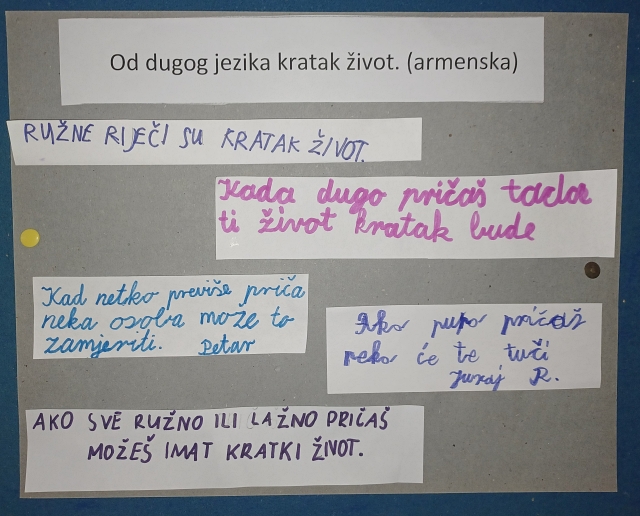 Od dugog jezika kratak život. (armenska)
RUŽNE RIJEČI SU KRATAK ŽIVOT.
Kada dugo pričaš tada
ti život kratak bude
Kad netko previše priča
neka osoba može to
zamjeriti. Petar
Ako puno pričaš
neko će te tuči
Juraj R.
AKO SVE RUŽNO ILI LAŽNO PRIČAŠ
MOŽEŠ IMAT KRATKI ŽIVOT.